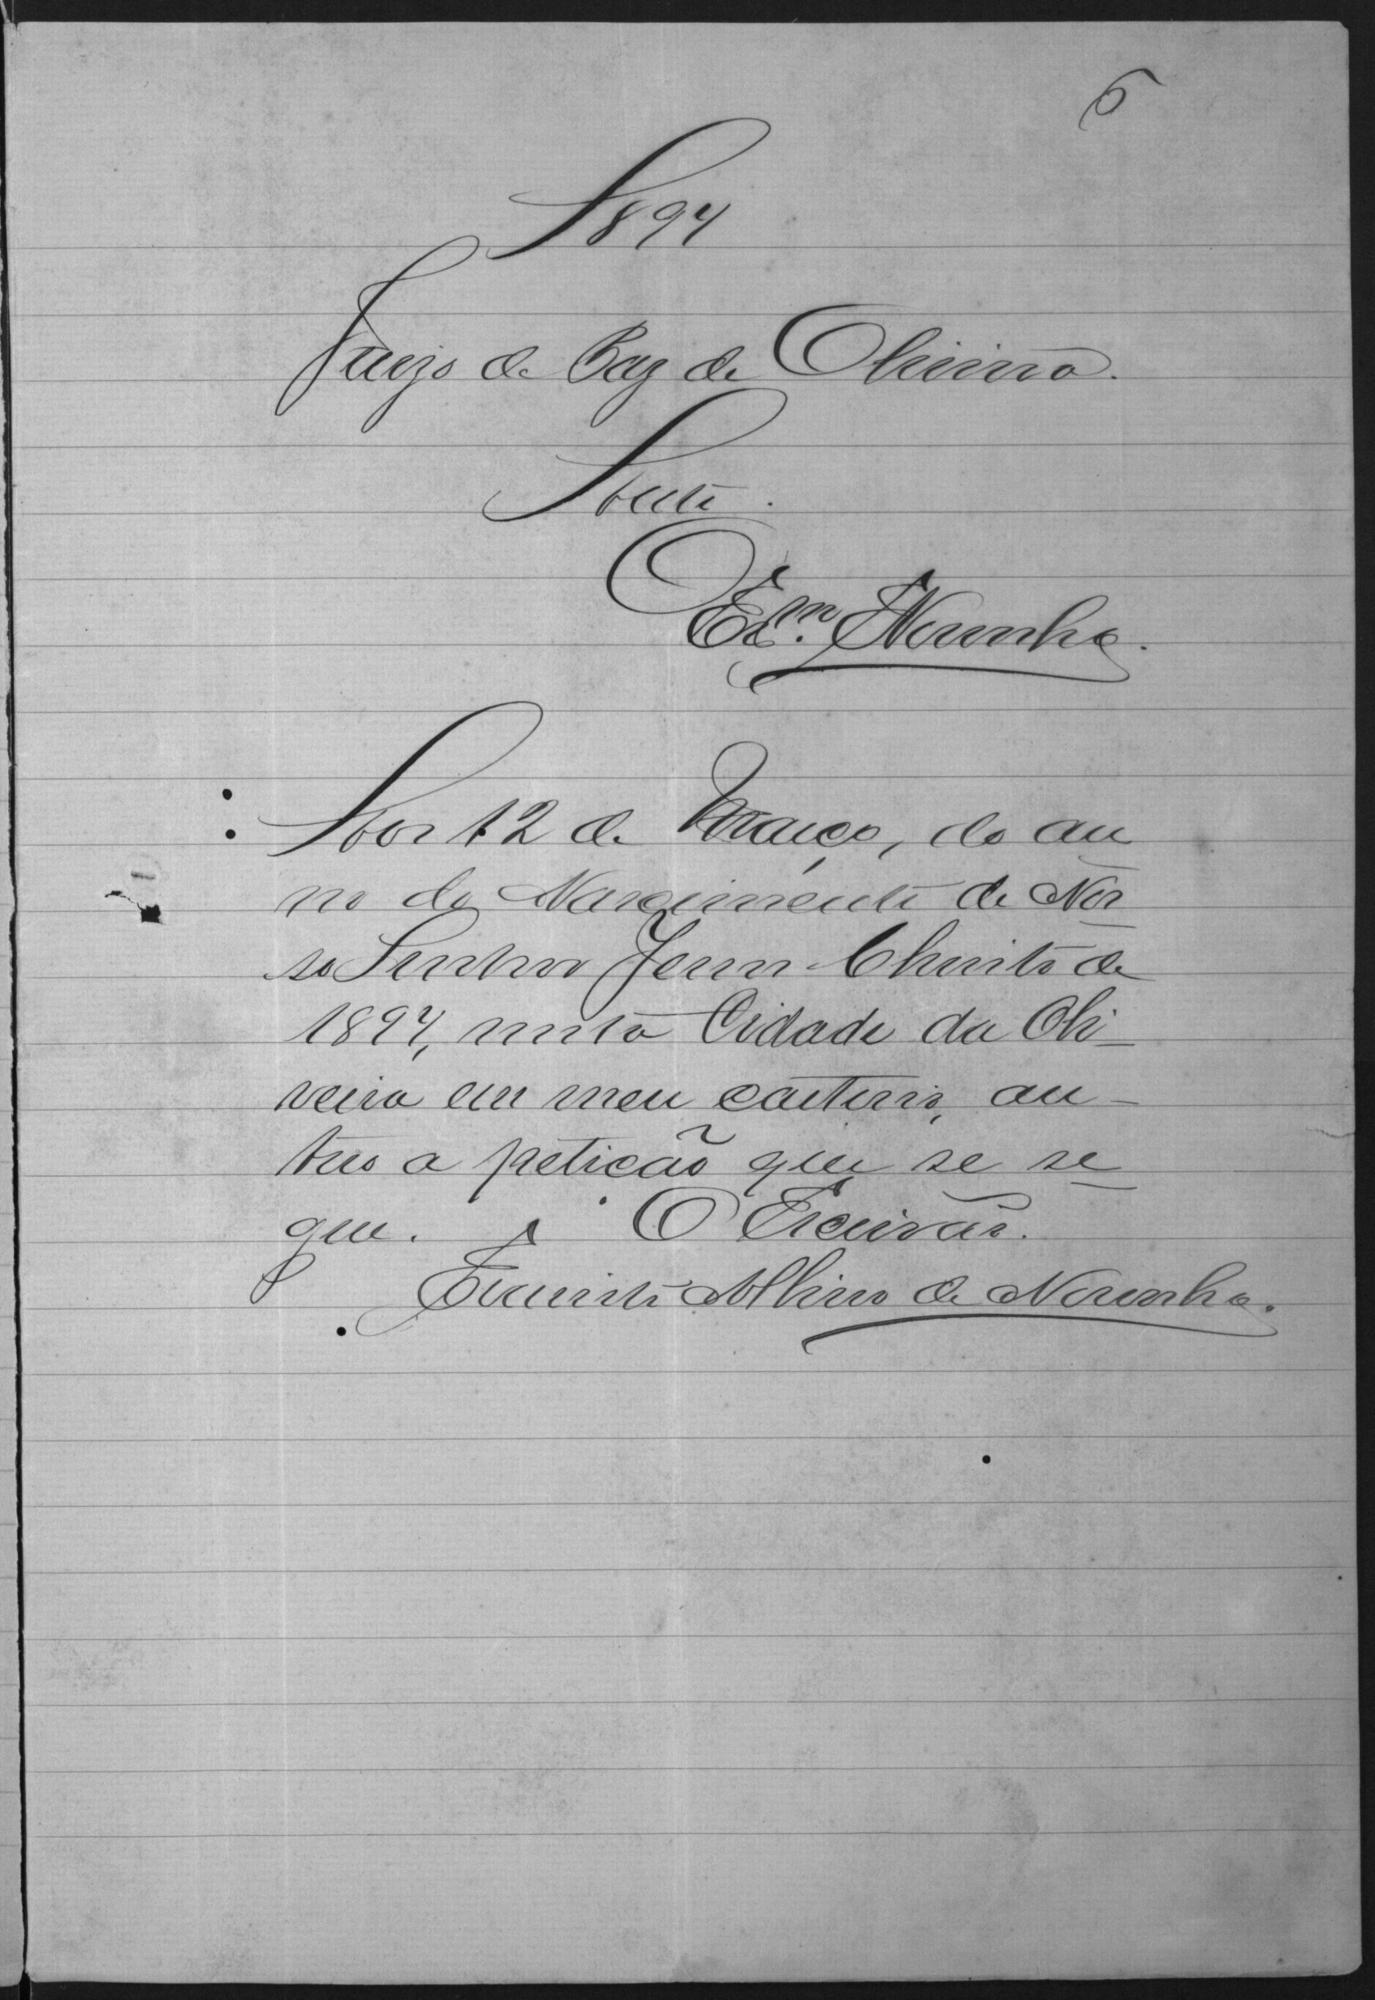 6
1894
Juizo de Paz de Oliveira.
O Escm. Noronha.
Aos 12 de Março, do an
no do Nascimento de Nos
so Senhor Jesus Christo de
1894, nesta Cidade da Oli-
veira em meu cartorio, au-
tuo a petição que se se
gue. O Escrivão.
Evaristo Albino de Noronha.